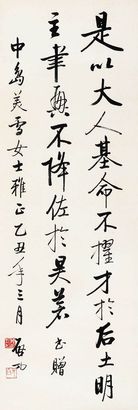 是以大人基命不擢才於后土明
主聿興不降佐於昊蒼 書贈
中島美雪女士雅正 乙丑年三月 啟功